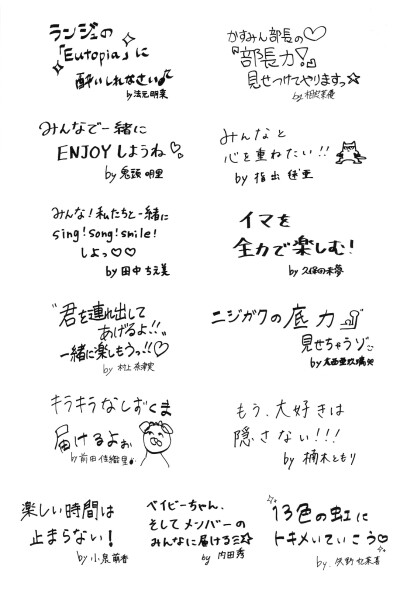 ランジュの
「Eutopia」に
酔いしれなさい
by 法元明菜
かすみん部長の♡
『部長力!』
見せつけてやりますっ☆
by 相良茉優
みんなで一緒に
ENJOYしようね♡
by 鬼頭明里
みんなと
心を重ねたい!!
by 指出毬亜
みんな!私たちと一緒に
sing!song!smile!
しよっ♡♡
by 田中ちえ美
イマを
全力で楽しむ!
by 久保田未夢
"君を連れ出して
あげるよ!!"
一緒に楽しもうっ!!♡
by 村上奈津実
ニジガクの底力
見せちゃうゾ
by 大西亜玖璃
キラキラなしずくま
届けるよぉ
by 前田佳織里
もう、大好きは
隠さない!!!
by 楠木ともり
楽しい時間は
止まらない!
by 小泉萌香
ベイビーちゃん、
そしてメンバーの
みんなに届ける
by 内田秀
13色の虹に
トキめいていこう♡
by.矢野妃菜喜